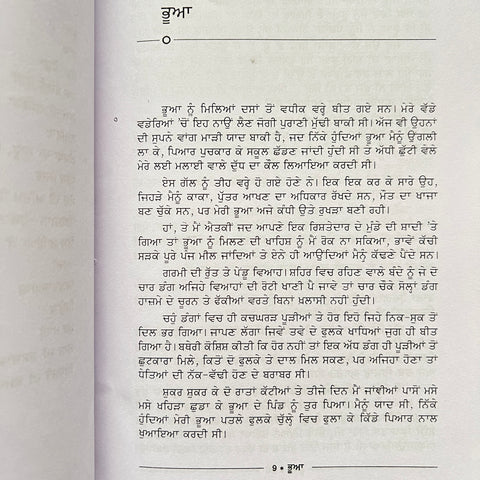 ਭੂਆ
ਭੂਆ ਨੂੰ ਮਿਲਿਆਂ ਦਸਾਂ ਤੋਂ ਵਧੀਕ ਵਰ੍ਹੇ ਬੀਤ ਗਏ ਸਨ। ਮੇਰੇ ਵੱਡੇ
ਵਡੇਰਿਆਂ 'ਚੋਂ ਇਹ ਨਾਉਂ ਲੈਣ ਜੋਗੀ ਪੁਰਾਣੀ ਮੁੱਢੀ ਬਾਕੀ ਸੀ। ਅੱਜ ਵੀ ਉਹਨਾਂ
ਦੀ ਸੁਪਨੇ ਵਾਂਗ ਮਾੜੀ ਯਾਦ ਬਾਕੀ ਹੈ, ਜਦ ਨਿੱਕੇ ਹੁੰਦਿਆਂ ਭੂਆ ਮੈਨੂੰ ਉਂਗਲੀ
ਲਾ ਕੇ, ਪਿਆਰ ਪੁਚਕਾਰ ਕੇ ਸਕੂਲ ਛੱਡਣ ਜਾਂਦੀ ਹੁੰਦੀ ਸੀ ਤੇ ਅੱਧੀ ਛੁੱਟੀ ਵੇਲੇ
ਮੇਰੇ ਲਈ ਮਲਾਈ ਵਾਲੇ ਦੁੱਧ ਦਾ ਕੌਲ ਲਿਆਇਆ ਕਰਦੀ ਸੀ।
ਏਸ ਗੱਲ ਨੂੰ ਤੀਹ ਵਰ੍ਹੇ ਹੋ ਗਏ ਹੋਣੇ ਨੇ। ਇਕ ਇਕ ਕਰ ਕੇ ਸਾਰੇ ਉਹ,
ਜਿਹੜੇ ਮੈਨੂੰ ਕਾਕਾ, ਪੁੱਤਰ ਆਖਣ ਦਾ ਅਧਿਕਾਰ ਰੱਖਦੇ ਸਨ, ਮੌਤ ਦਾ ਖਾਜਾ
ਬਣ ਚੁੱਕੇ ਸਨ, ਪਰ ਮੇਰੀ ਭੂਆ ਅਜੇ ਕੰਧੀ ਉਤੇ ਰੁਖੜਾ ਬਣੀ ਰਹੀ।
ਹਾਂ, ਤੇ ਮੈਂ ਐਤਕੀਂ ਜਦ ਆਪਣੇ ਇਕ ਰਿਸ਼ਤੇਦਾਰ ਦੇ ਮੁੰਡੇ ਦੀ ਸ਼ਾਦੀ 'ਤੇ
ਗਿਆ ਤਾਂ ਭੂਆ ਨੂੰ ਮਿਲਣ ਦੀ ਖਾਹਿਸ਼ ਨੂੰ ਮੈਂ ਰੋਕ ਨਾ ਸਕਿਆ, ਭਾਵੇਂ ਕੱਚੀ
ਸੜਕੇ ਪੂਰੇ ਪੰਜ ਮੀਲ ਜਾਂਦਿਆਂ ਤੇ ਏਨੇ ਹੀ ਆਉਂਦਿਆਂ ਮੈਨੂੰ ਕੱਢਣੇ ਪੈਂਦੇ ਸਨ।
ਗਰਮੀ ਦੀ ਰੁੱਤ ਤੇ ਪੇਂਡੂ ਵਿਆਹ। ਸ਼ਹਿਰ ਵਿਚ ਰਹਿਣ ਵਾਲੇ ਬੰਦੇ ਨੂੰ ਜੇ ਦੋ
ਚਾਰ ਡੰਗ ਅਜਿਹੇ ਵਿਆਹਾਂ ਦੀ ਰੋਟੀ ਖਾਣੀ ਪੈ ਜਾਵੇ ਤਾਂ ਚਾਰ ਚੌਕੇ ਸੋਲ੍ਹਾਂ ਡੰਗ
ਹਾਜ਼ਮੇ ਦੇ ਚੂਰਨ ਤੇ ਫੱਕੀਆਂ ਵਰਤੇ ਬਿਨਾਂ ਖ਼ਲਾਸੀ ਨਹੀਂ ਹੁੰਦੀ।
ਚਹੁੰ ਡੰਗਾਂ ਵਿਚ ਹੀ ਕਚਘਰੜ ਪੂੜੀਆਂ ਤੇ ਹੋਰ ਇਹੋ ਜਿਹੇ ਨਿਕ-ਸੁਕ ਤੋਂ
ਦਿਲ ਭਰ ਗਿਆ। ਜਾਪਣ ਲੱਗਾ ਜਿਵੇਂ ਤਵੇ ਦੇ ਫੁਲਕੇ ਖਾਧਿਆਂ ਜੁਗ ਹੀ ਬੀਤ
ਗਿਆ ਹੈ। ਬਥੇਰੀ ਕੋਸ਼ਿਸ਼ ਕੀਤੀ ਕਿ ਹੋਰ ਨਹੀਂ ਤਾਂ ਇਕ ਅੱਧ ਡੰਗ ਹੀ ਪੂੜੀਆਂ ਤੋਂ
ਛੁਟਕਾਰਾ ਮਿਲੇ, ਕਿਤੋਂ ਦੋ ਫੁਲਕੇ ਤੇ ਦਾਲ ਮਿਲ ਸਕਣ, ਪਰ ਅਜਿਹਾ ਹੋਣਾ ਤਾਂ
ਧੇਤਿਆਂ ਦੀ ਨੱਕ-ਵੱਢੀ ਹੋਣ ਦੇ ਬਰਾਬਰ ਸੀ।
ਸ਼ੁਕਰ ਸ਼ੁਕਰ ਕੇ ਦੋ ਰਾਤਾਂ ਕੱਟੀਆਂ ਤੇ ਤੀਜੇ ਦਿਨ ਮੈਂ ਜਾਂਞੀਆਂ ਪਾਸੋਂ ਮਸੇ
ਮਸੇ ਖਹਿੜਾ ਛੁਡਾ ਕੇ ਭੂਆ ਦੇ ਪਿੰਡ ਨੂੰ ਤੁਰ ਪਿਆ। ਮੈਨੂੰ ਯਾਦ ਸੀ, ਨਿੱਕੇ
ਹੁੰਦਿਆਂ ਮੇਰੀ ਭੂਆ ਪਤਲੇ ਫੁਲਕੇ ਚੁੱਲ੍ਹੇ ਵਿਚ ਫੁਲਾ ਕੇ ਕਿੱਡੇ ਪਿਆਰ ਨਾਲ
ਖੁਆਇਆ ਕਰਦੀ ਸੀ।
9 • ਭੂਆ